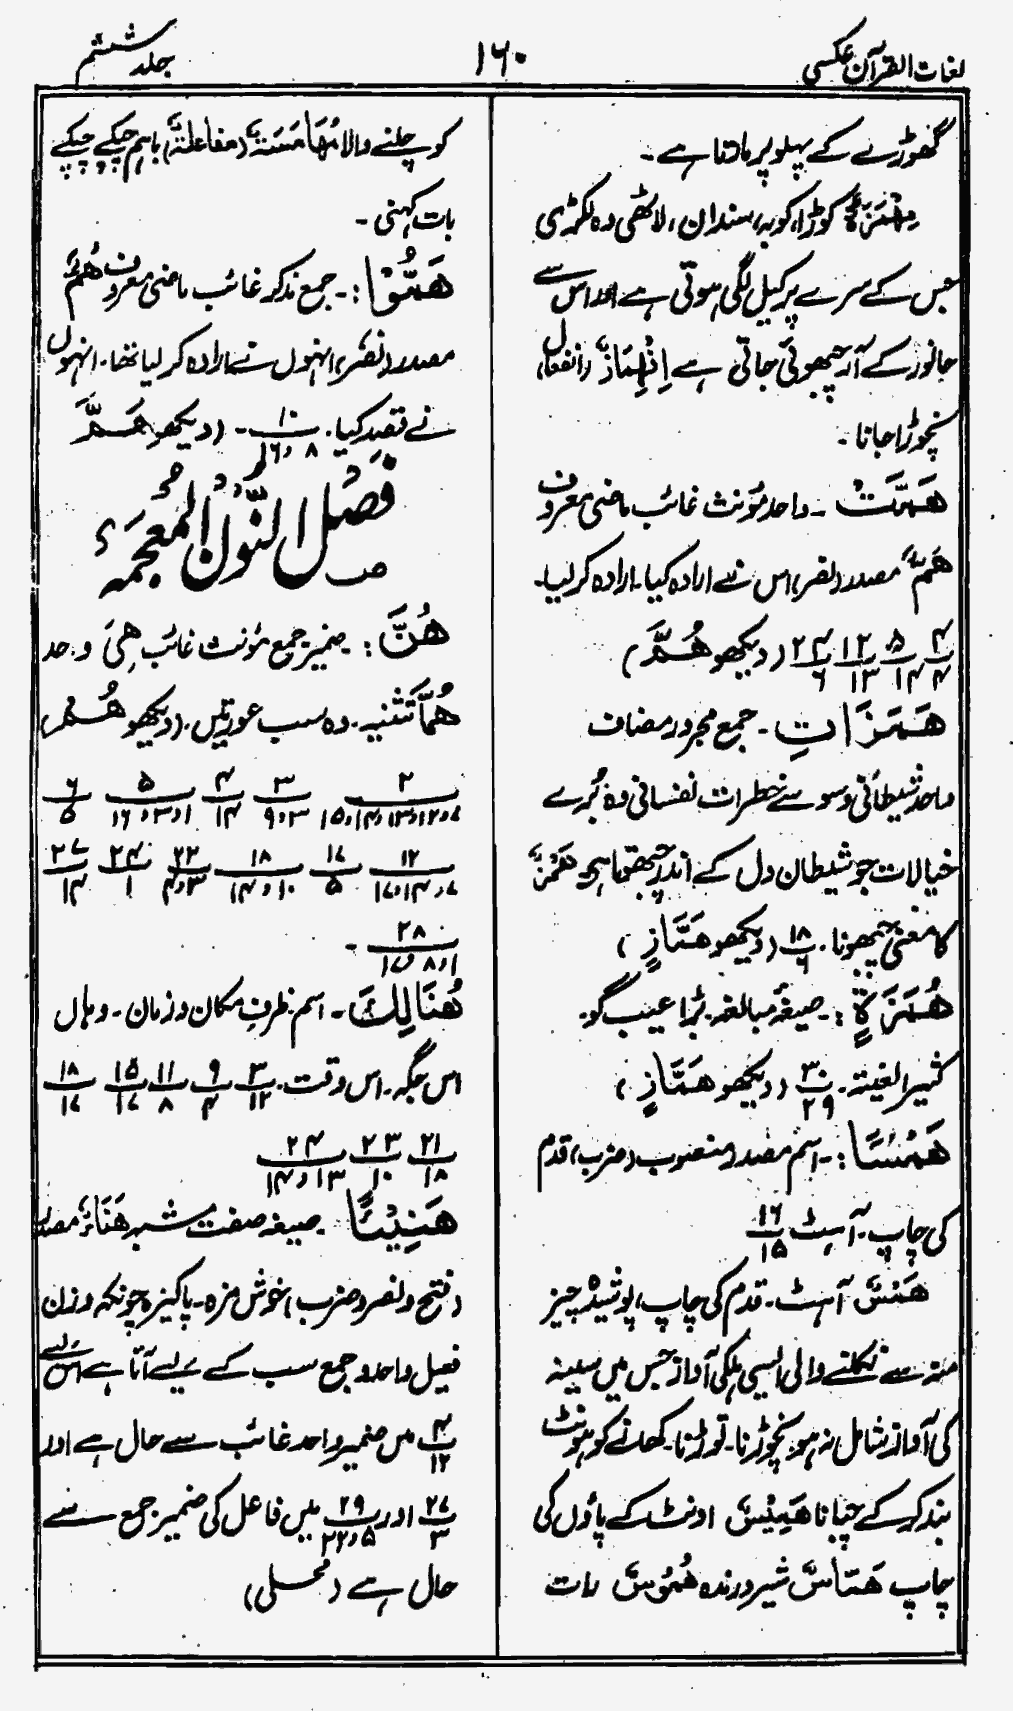 لغات القرآن عکسی
۱۶۰
جلد ششم
گھوڑے کے پہلو پر مارتا ہے ۔
مِهْمَزَةٌ کوڑا، کوبہ، سندان، لاٹھی وہ لکڑی
جس کے سرے پر کیل لگی ہوتی ہے اور اس سے
جانور کے آر چبھوئی جاتی ہے اِنْهِمَازٌ (انفعال)
نچوڑا جانا ۔
هَمَّتْ ۔ واحد مؤنث غائب ماضی معروف
هَمٌّ مصدر (نصر) اس نے ارادہ کیا۔ ارادہ کر لیا۔
۴/۴ ۵/۱۴ ۱۲/۱۳ ۲۴/۶ (دیکھو هُمَّ)
هَمَزَاتِ ۔ جمع مجرور مضاف
واحد شیطانی وسوسے خطرات نفسانی وہ بُرے
خیالات جو شیطان دل کے اندر چبھوتا ہے هَمْزٌ
کا معنی چبھونا ۔ ۱۸/۶ (دیکھو هَمَّازٍ)
هُمَزَةٍ : ۔ صیغۂ مبالغہ ۔ بڑا عیب گو ۔
کثیر الغیبتہ ۔ ۳۰/۲۹ (دیکھو هَمَّازٍ)
هَمْسًا : ۔ اسم مصدر منصوب (ضرب) قدم
کی چاپ ۔ آہٹ ۱۶/۱۵
هَمْسٌ آہٹ ۔ قدم کی چاپ، پوشیدہ چیز
منہ سے نکلنے والی ایسی ہلکی آواز جس میں سینہ
کی آواز شامل نہ ہو نچوڑنا ۔ توڑنا ۔ کھانے کو ہونٹ
بند کر کے چبانا هَمِيْسٌ اونٹ کے پاؤں کی
چاپ هَمَّاسٌ شیر درندہ هَمُوْسٌ رات
کو چلنے والا مُهَامَسَةٌ (مفاعلۃ) باہم چپکے چپکے
بات کہنی ۔
هَمُّوْا : ۔ جمع مذکر غائب ماضی معروف هُمٌّ
مصدر (نصر) انہوں نے ارادہ کر لیا تھا ۔ انہوں
نے قصد کیا ۔ ۱۰/۸ و ۱۶ ۔ (دیکھو هَمَّ)
فصل النون المعجمہ
هُنَّ : ۔ ضمیر جمع مؤنث غائب هِيَ واحد
هُمَا تثنیہ ۔ وہ سب عورتیں ۔ (دیکھو هُمْ)
۲/۷ و ۱۲ و ۱۳ و ۱۴ و ۱۵ ۳/۳ و ۹ ۴/۱۴ ۵/۱ و ۳ و ۱۶ ۶/۵
۱۲/۷ و ۱۴ و ۱۷ ۱۷/۵ ۱۸/۱۰ و ۱۴ ۲۲/۳ و ۴ ۲۴/۱ ۲۷/۱۴
۲۸/۱ و ۸ و ۱۷ ۔
هُنَالِكَ ۔ اسم ظرف مکان و زمان ۔ وہاں
اس جگہ ۔ اس وقت ۔ ۳/۱۲ ۹/۴ ۱۱/۸ ۱۵/۱۷ ۱۸/۱۷
۲۱/۱۸ ۲۳/۱۰ ۲۴/۱۳ و ۱۴
هَنِيْئًا ۔ صیغہ صفت مشبہ هَنَاءٌ مصدر
(فتح و نصر و ضرب) خوش مزہ ۔ پاکیزہ چونکہ وزن
فعیل واحد و جمع سب کے لیے آتا ہے اس لیے
۴/۱۲ میں ضمیر واحد غائب سے حال ہے اور
۲۷/۳ اور ۲۹/۵ و ۲۲ میں فاعل کی ضمیر جمع سے
حال ہے (محلی)